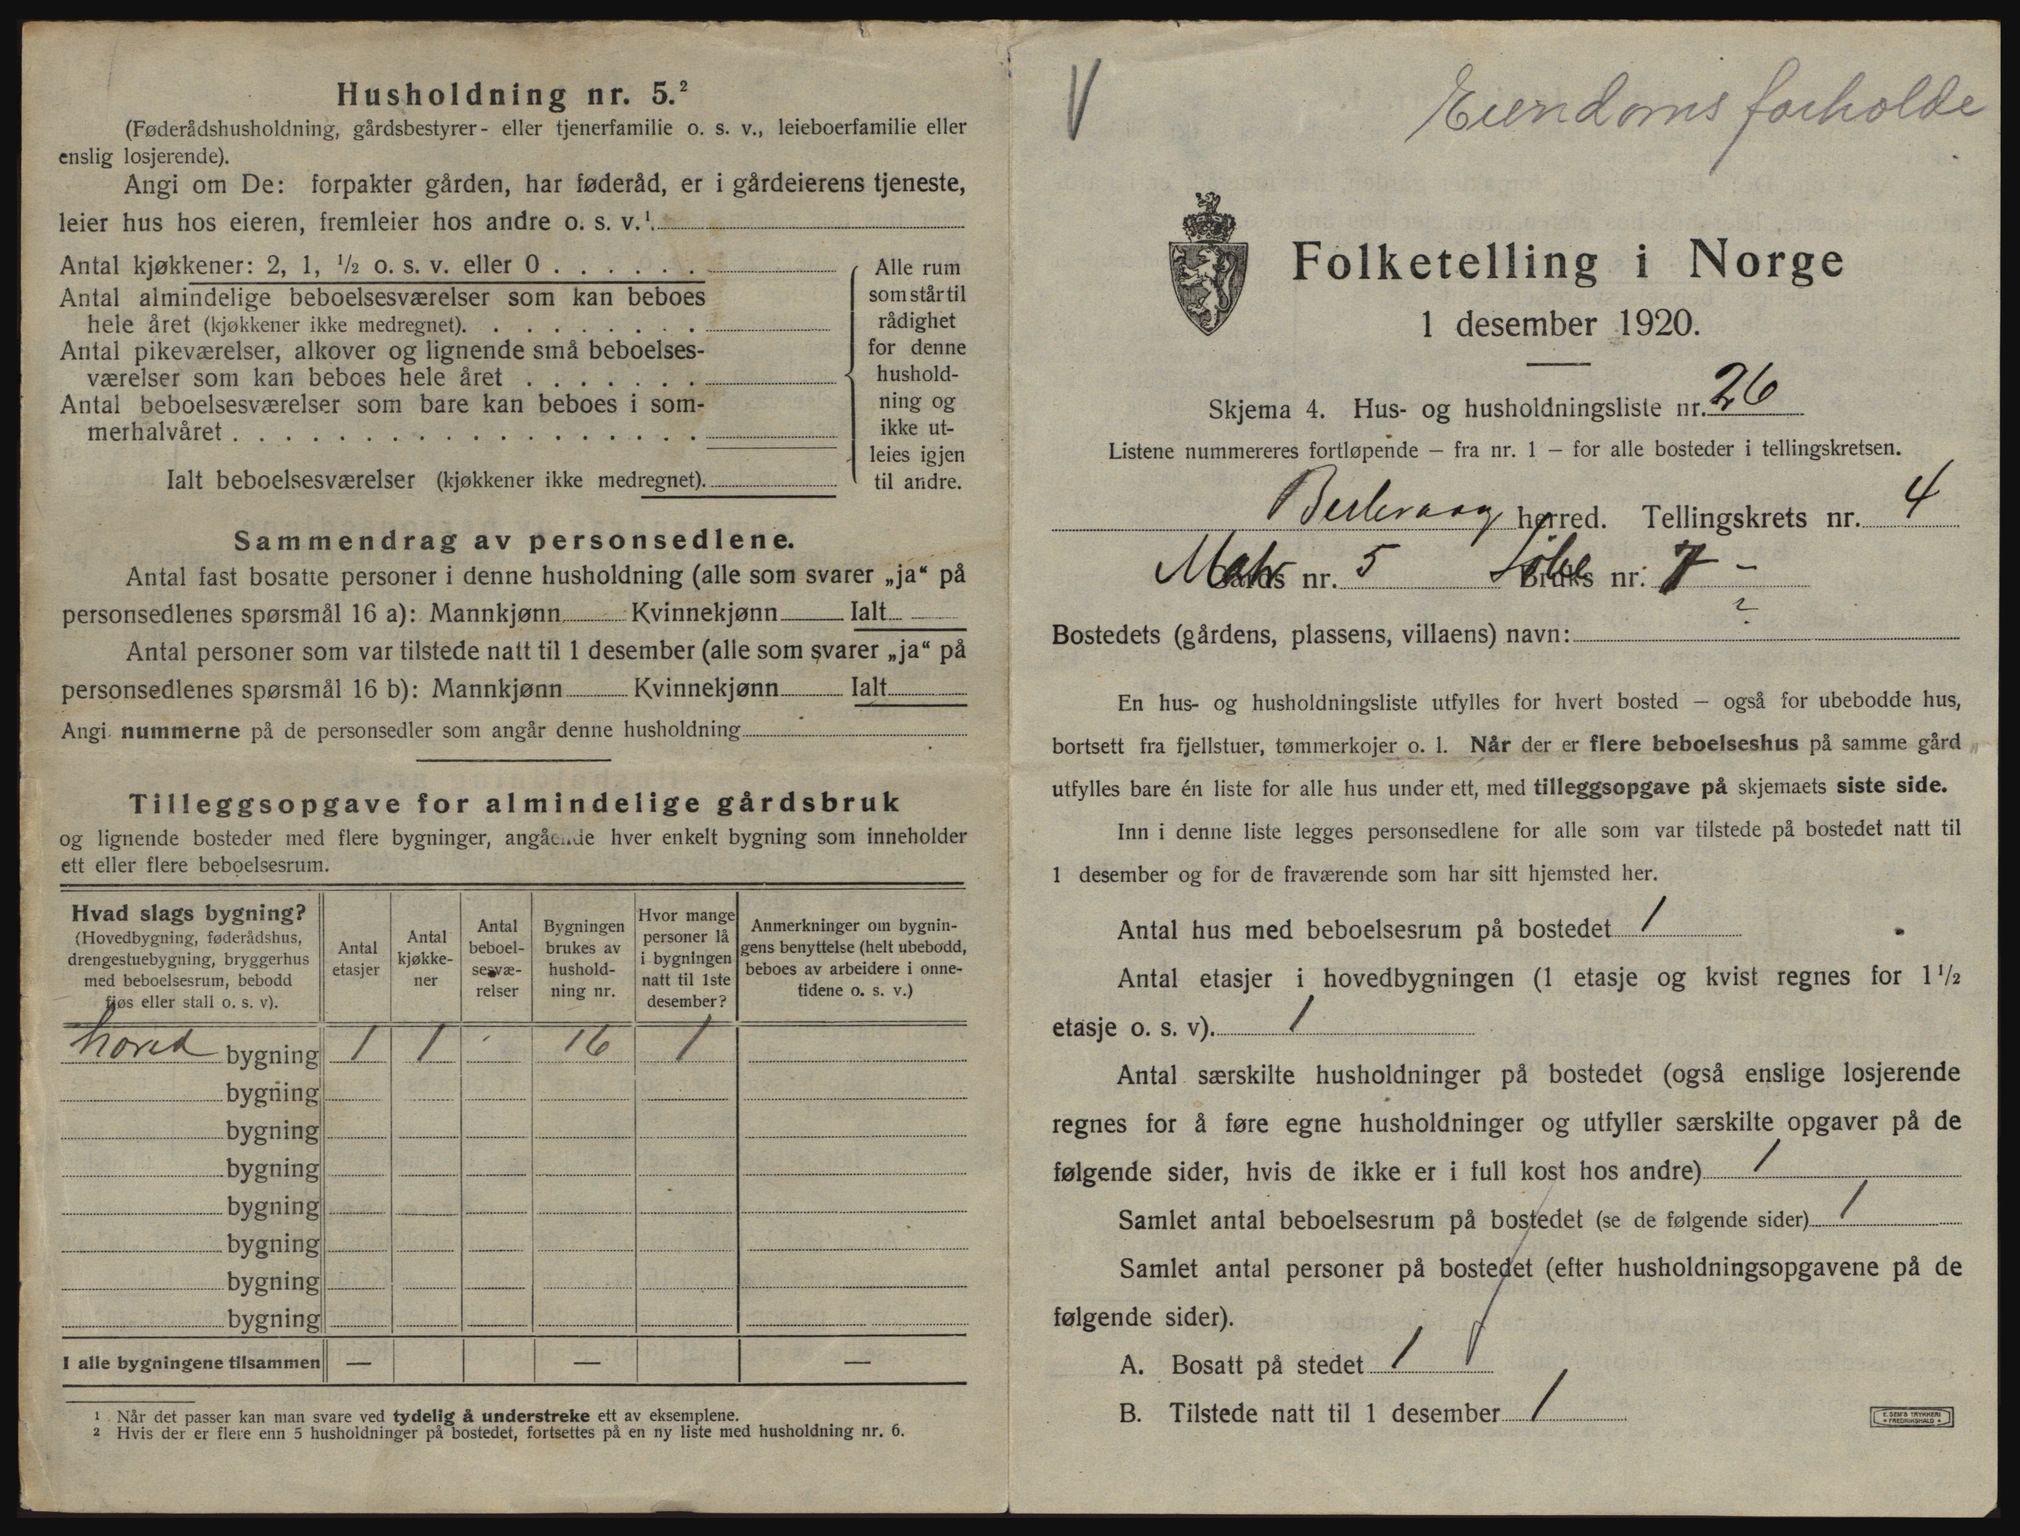 Husholdning nr. 5.²
(Føderådshusholdning, gårdsbestyrer- eller tjenerfamilie o. s. v., leieboerfamilie eller
enslig losjerende).
Angi om De: forpakter gården, har føderåd, er i gårdeierens tjeneste,
leier hus hos eieren, fremleier hos andre o. s. v.¹.
Antal kjøkkener: 2, 1, ½ o. s. v. eller 0 . . . . . .
Antal almindelige beboelsesværelser som kan beboes
hele året (kjøkkener ikke medregnet). . . . . . . . .
Antal pikeværelser, alkover og lignende små beboelses-
værelser som kan beboes hele året . . . . . . .
Antal beboelsesværelser som bare kan beboes i som-
merhalvåret . . . . . . . . . . . . . . . . . .
Ialt beboelsesværelser (kjøkkener ikke medregnet).
Alle rum
som står til
rådighet
for denne
hushold-
ning og
ikke ut-
leies igjen
til andre.
Sammendrag av personsedlene.
Antal fast bosatte personer i denne husholdning (alle som svarer „ja“ på
personsedlenes spørsmål 16 a): Mannkjønn Kvinnekjønn Ialt
Antal personer som var tilstede natt til 1 desember (alle som svarer „ja“ på
personsedlenes spørsmål 16 b): Mannkjønn Kvinnekjønn Ialt
Angi nummerne på de personsedler som angår denne husholdning
Tilleggsopgave for almindelige gårdsbruk
og lignende bosteder med flere bygninger, angående hver enkelt bygning som inneholder
ett eller flere beboelsesrum.
Hvad slags bygning?
(Hovedbygning, føderådshus,
drengestuebygning, bryggerhus
med beboelsesrum, bebodd
fjøs eller stall o. s. v).
Antal
etasjer
Antal
kjøkke-
ner
Antal
beboel-
sesvæ-
relser
Bygningen
brukes av
hushold-
ning nr.
Hvor mange
personer lå
i bygningen
natt til 1ste
desember?
Anmerkninger om bygnin-
gens benyttelse (helt ubebodd,
beboes av arbeidere i onne-
tidene o. s. v.)
hoved bygning 1 1 16 1
bygning
bygning
bygning
bygning
bygning
bygning
bygning
I alle bygningene tilsammen — — —
¹ Når det passer kan man svare ved tydelig å understreke ett av eksemplene.
² Hvis der er flere enn 5 husholdninger på bostedet, fortsettes på en ny liste med husholdning nr. 6.
Eiendomsforholde
Folketelling i Norge
1 desember 1920.
Skjema 4. Hus- og husholdningsliste nr. 26
Listene nummereres fortløpende – fra nr. 1 – for alle bosteder i tellingskretsen.
Berlevaag herred. Tellingskrets nr. 4
Matr Gårds nr. 5 Løbe Bruks nr. 7 -
?
Bostedets (gårdens, plassens, villaens) navn:
En hus- og husholdningsliste utfylles for hvert bosted – også for ubebodde hus,
bortsett fra fjellstuer, tømmerkojer o. l. Når der er flere beboelseshus på samme gård
utfylles bare én liste for alle hus under ett, med tilleggsopgave på skjemaets siste side.
Inn i denne liste legges personsedlene for alle som var tilstede på bostedet natt til
1 desember og for de fraværende som har sitt hjemsted her.
Antal hus med beboelsesrum på bostedet 1
Antal etasjer i hovedbygningen (1 etasje og kvist regnes for 1½
etasje o. s. v). 1
Antal særskilte husholdninger på bostedet (også enslige losjerende
regnes for å føre egne husholdninger og utfyller særskilte opgaver på de
følgende sider, hvis de ikke er i full kost hos andre) 1
Samlet antal beboelsesrum på bostedet (se de følgende sider) 1
Samlet antal personer på bostedet (efter husholdningsopgavene på de
følgende sider).
A. Bosatt på stedet 1
B. Tilstede natt til 1 desember 1
E. SEM'S TRYKKERI
FREDRIKSHALD